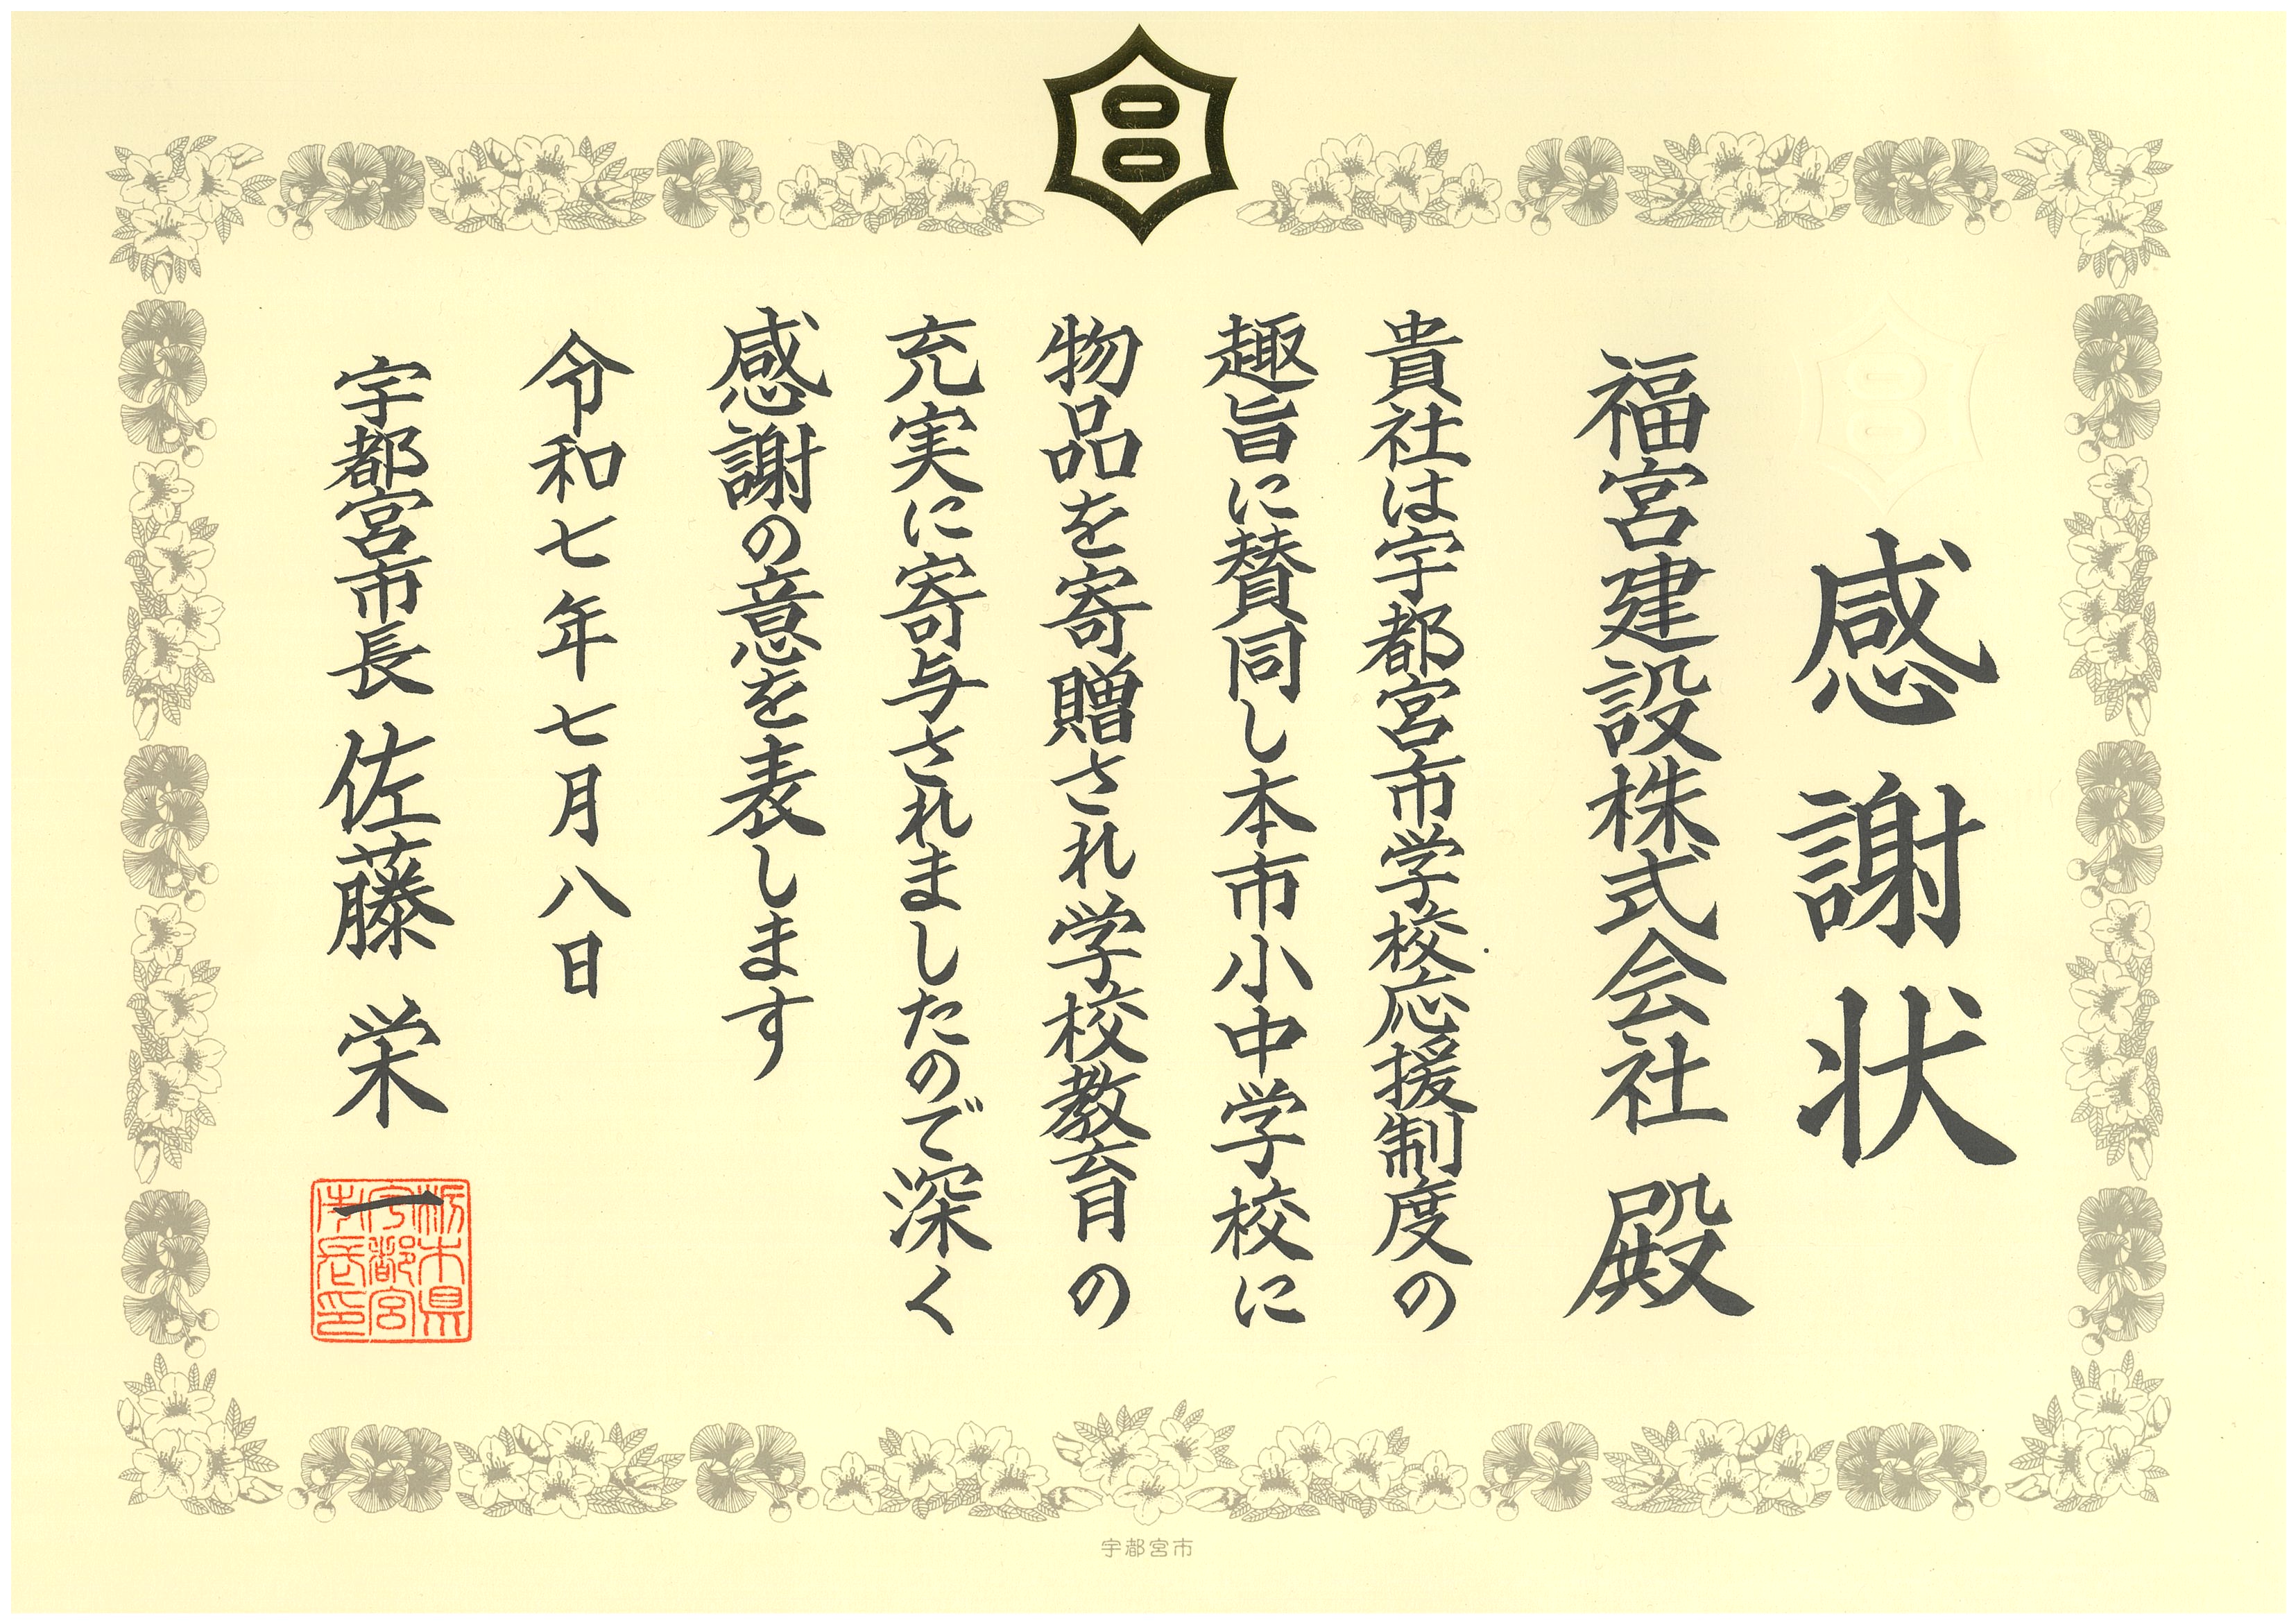 感謝状
福宮建設株式会社 殿
貴社は宇都宮市学校応援制度の
趣旨に賛同し本市小中学校に
物品を寄贈され学校教育の
充実に寄与されましたので深く
感謝の意を表します
令和七年七月八日
宇都宮市長 佐藤 栄 一
栃木県
宇都宮
市長印
宇都宮市